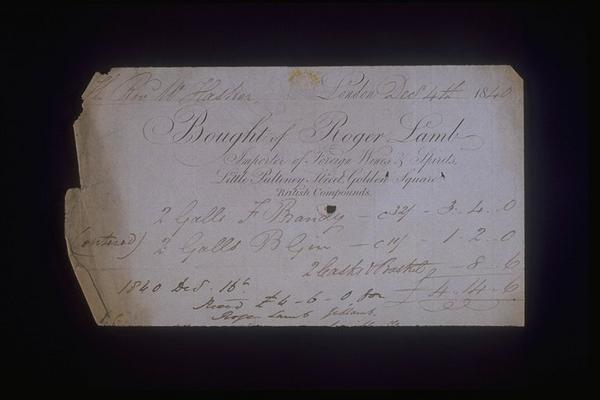 Rev Mr Hasker London Decr 4th 1840
Bought of Roger Lamb
Importer of Foreign Wines & Spirits,
Little Pulteney Street Golden Square
British Compounds.
2 Galls F Brandy – c 32/ – 3 . 4 . 0
(entered) 2 Galls B Gin – c 11/ – 1 . 2 . 0
2 Casks & Basket – 8 . 6
£ 4 . 14 . 6
1840 Decr 16th
Recd £4 – 6 – 0 for
Roger Lamb